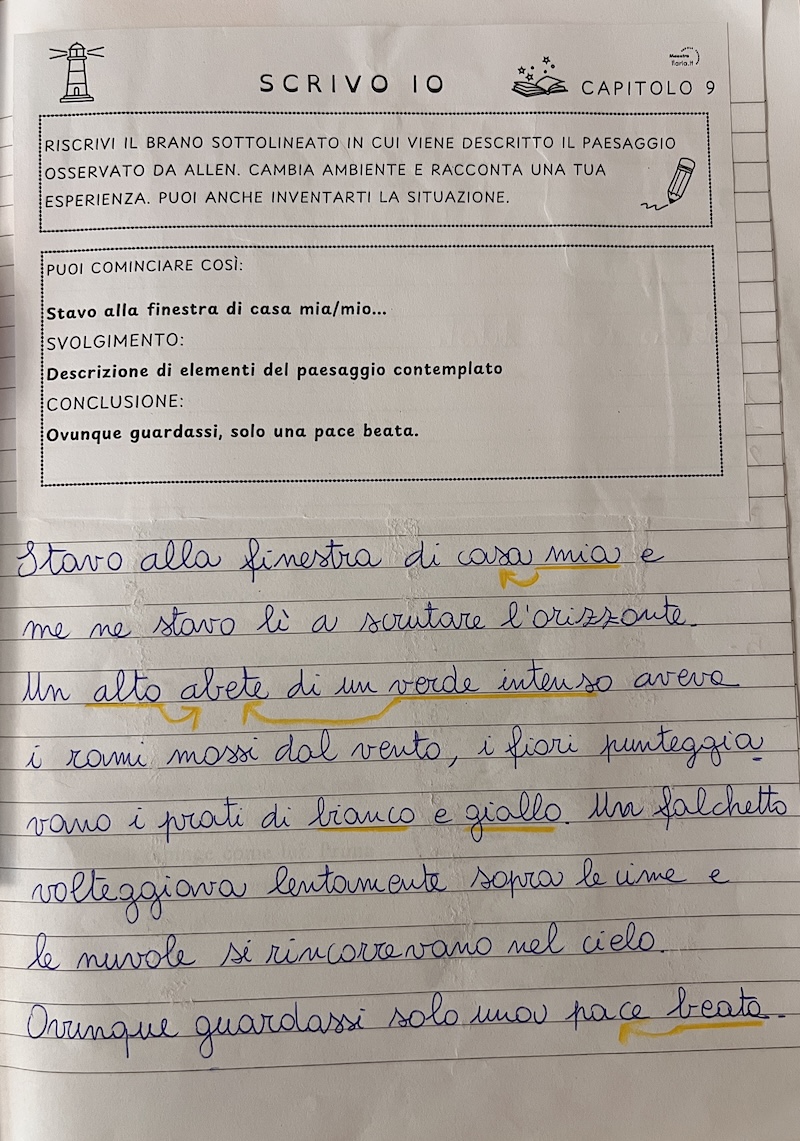 Maestra
Ilaria.it
SCRIVO IO
CAPITOLO 9
RISCRIVI IL BRANO SOTTOLINEATO IN CUI VIENE DESCRITTO IL PAESAGGIO
OSSERVATO DA ALLEN. CAMBIA AMBIENTE E RACCONTA UNA TUA
ESPERIENZA. PUOI ANCHE INVENTARTI LA SITUAZIONE.
PUOI COMINCIARE COSÌ:
Stavo alla finestra di casa mia/mio...
SVOLGIMENTO:
Descrizione di elementi del paesaggio contemplato
CONCLUSIONE:
Ovunque guardassi, solo una pace beata.
Stavo alla finestra di casa mia e
me ne stavo lì a scrutare l'orizzonte.
Un alto abete di un verde intenso aveva
i rami mossi dal vento, i fiori punteggia
vano i prati di bianco e giallo. Un falchetto
volteggiava lentamente sopra le cime e
le nuvole si rincorrevano nel cielo.
Ovunque guardassi solo una pace beata.